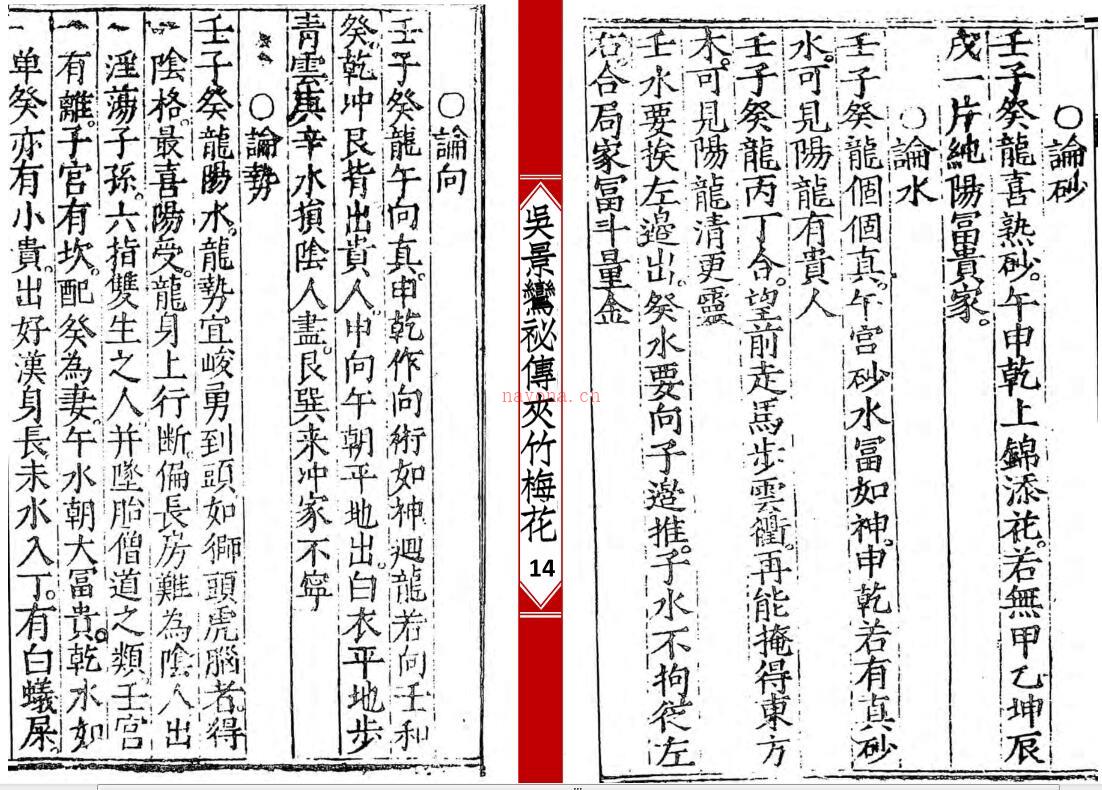 ○論砂
壬子癸龍喜熟砂。午申乾上錦添花。若無甲乙坤辰
戌一片純陽富貴家。
○論水
壬子癸龍個個真。午宮砂水富如神。申乾若有真砂
水。可見陽龍有貴人
壬子癸龍丙丁合。望前走馬步雲衢。再能掩得東方
木。可見陽龍清更靈
壬水要挨左邉出。癸水要向子邉推。子水不拘從左
右。合局家富斗量金
吳景鸞祕傳夾竹梅花
14
nayona.cn
○論向
壬子癸龍午向真。申乾作向術如神。迴龍若向壬和
癸。乾冲艮背出貴人。申向午朝平地出。白衣平地步
青雲。庚辛水損陰人盡。艮巽来冲家不寧
○論勢
壬子癸龍陽水。龍勢宜峻勇到頭如獅頭虎腦者。得
陰格。最喜陽受。龍身上行断。偏長房難為陰人出
一淫蕩子孫。六指雙生之人并墜胎僧道之類壬宮
一有離。子宮有坎。配癸為妻。午水朝大富貴。乾水如
一单癸亦有小貴。出好漢身長未水入丁。有白蟻屎